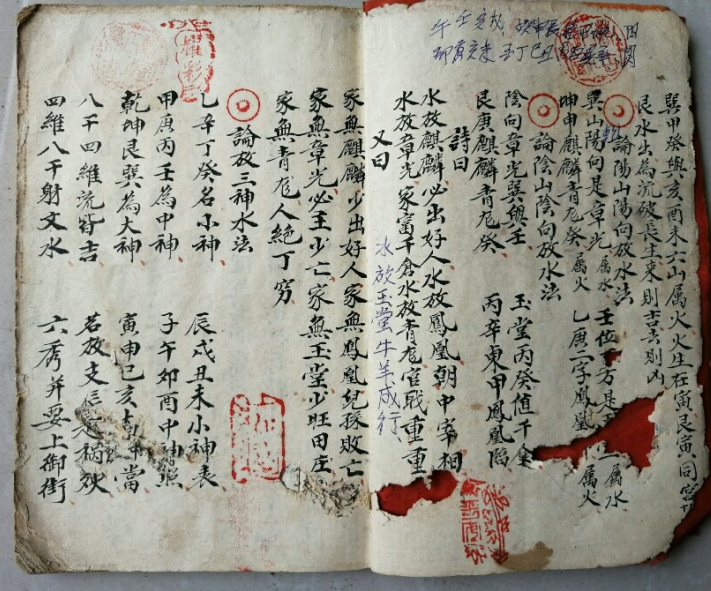 巽甲癸與亥酉未六山属火火生在寅艮寅同宮
艮水出為流破長生来則吉去則凶
論陽山陽向放水法
巽山陽向是章光属水
坤申麒麟青龙癸属火
乙庚二字鳳凰
属火
論陰山陰向放水法
陰向章光巽與壬
玉堂丙癸值千金
艮庚麒麟青龙癸
丙辛東甲鳳凰陷
詩曰
水放麒麟必出好人水放鳳凰朝中宰相
水放章光家富千倉水放青龙官職重重
水放玉堂牛羊成行
又曰
家無麒麟少出好人家無鳳凰兒孫敗亡
家無章光必主少亡家無玉堂少旺田庄
家無青龙人絶丁穷
論放三神水法
乙辛丁癸名小神
辰戌丑未小神表
甲庚丙壬為中神
子午卯酉中神照
乾坤艮巽為大神
寅申巳亥
當
八干四維流皆吉
若放支辰
禍殃
四維八干射文水
六秀并要上御街